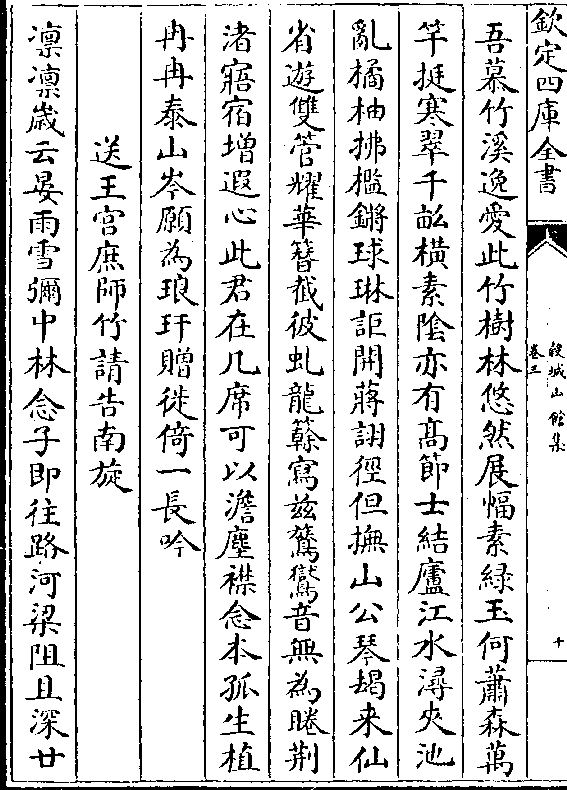 欽定四庫全書
穀城山館集
卷三
十
吾慕竹溪逸愛此竹樹林悠然展幅素緑玉何蕭森萬
竿挺寒翠千畝横素陰亦有髙節士結廬江水潯夾池
亂橘柚拂檻鏘球琳詎開蔣詡徑但撫山公琴朅来仙
省遊雙管耀華簪截彼虬龍簵寫兹鸑鷟音無為睠荆
渚寤宿增遐心此君在几席可以澹塵襟念本孤生植
冉冉泰山岑願為琅玕贈徙倚一長吟
送王宫庶師竹請告南旋
凛凛歳云晏雨雪彌中林念子即往路河梁阻且深廿